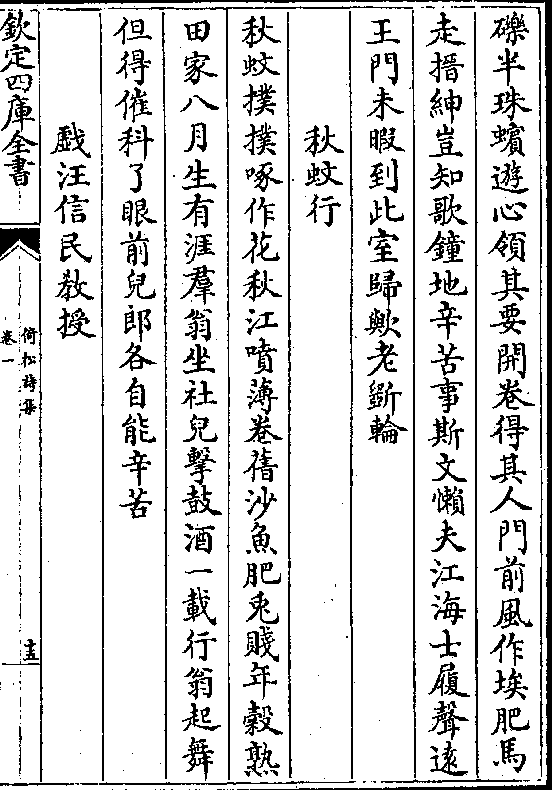 礫半珠蠙遊心領其要開卷得其人門前風作埃肥馬
走搢紳豈知歌鐘地辛苦事斯文懶夫江海士履聲遠
王門未暇到此室歸歟老斵輪
秋蚊行
秋蚊撲撲啄作花秋江噴薄卷舊沙魚肥兎賤年穀熟
田家八月生有涯羣翁坐社兒擊鼓酒一載行翁起舞
但得催科了眼前兒郎各自能辛苦
戲汪信民教授
欽定四庫全書
倚松詩集
卷一
十五